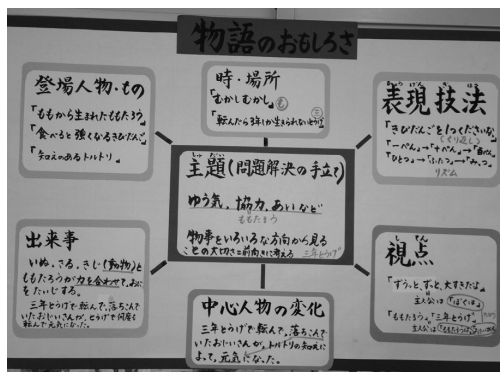 物語のおもしろさ
登場人物・もの
「ももから生まれたももたろう」
「食べると強くなるきびだんご」
「ちえのあるトルトリ」
時・場所
「むかしむかし」
「転んだら3年しか生きられないとうげ」
表現技法
「きびだんごを1つください」
(くり返し)
リズム
主題(問題解決の手立て)
ゆう気、協力、あいなど
ももたろう
物事をいろいろな方向から見る
ことの大切さ=前向きに考える 三年とうげ
出来事
いぬ、さる、きじ(動物)と
ももたろうが力を合わせて、おに
をたいじする。
三年とうげで転んで、落ちこんで
いたおじいさんが、とうげで何度も
転んで元気になった。
中心人物の変化
三年とうげで転んで、落ちこんで
いたおじいさんが、トルトリの知えに
よって、元気になった。
視点
「ずうっと、ずっと、大すきだよ」
主人公は「ぼくは」
「ももたろう」「三年とうげ」